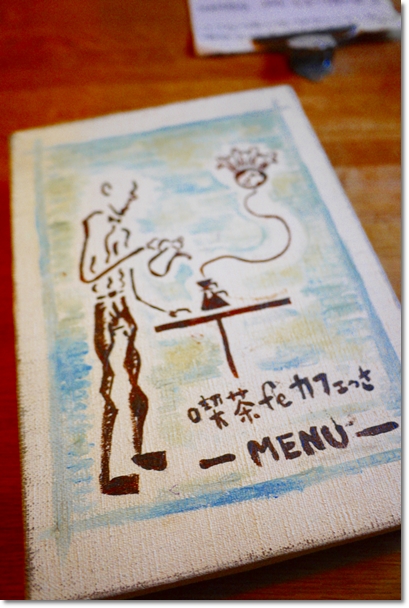 喫茶feカフェっさ
ーMENUー